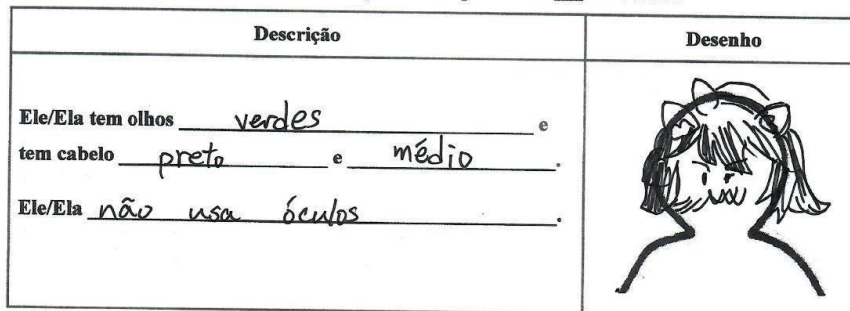 Descrição
Desenho
Ele/Ela tem olhos verdes e
tem cabelo preto e médio.
Ele/Ela não usa óculos.